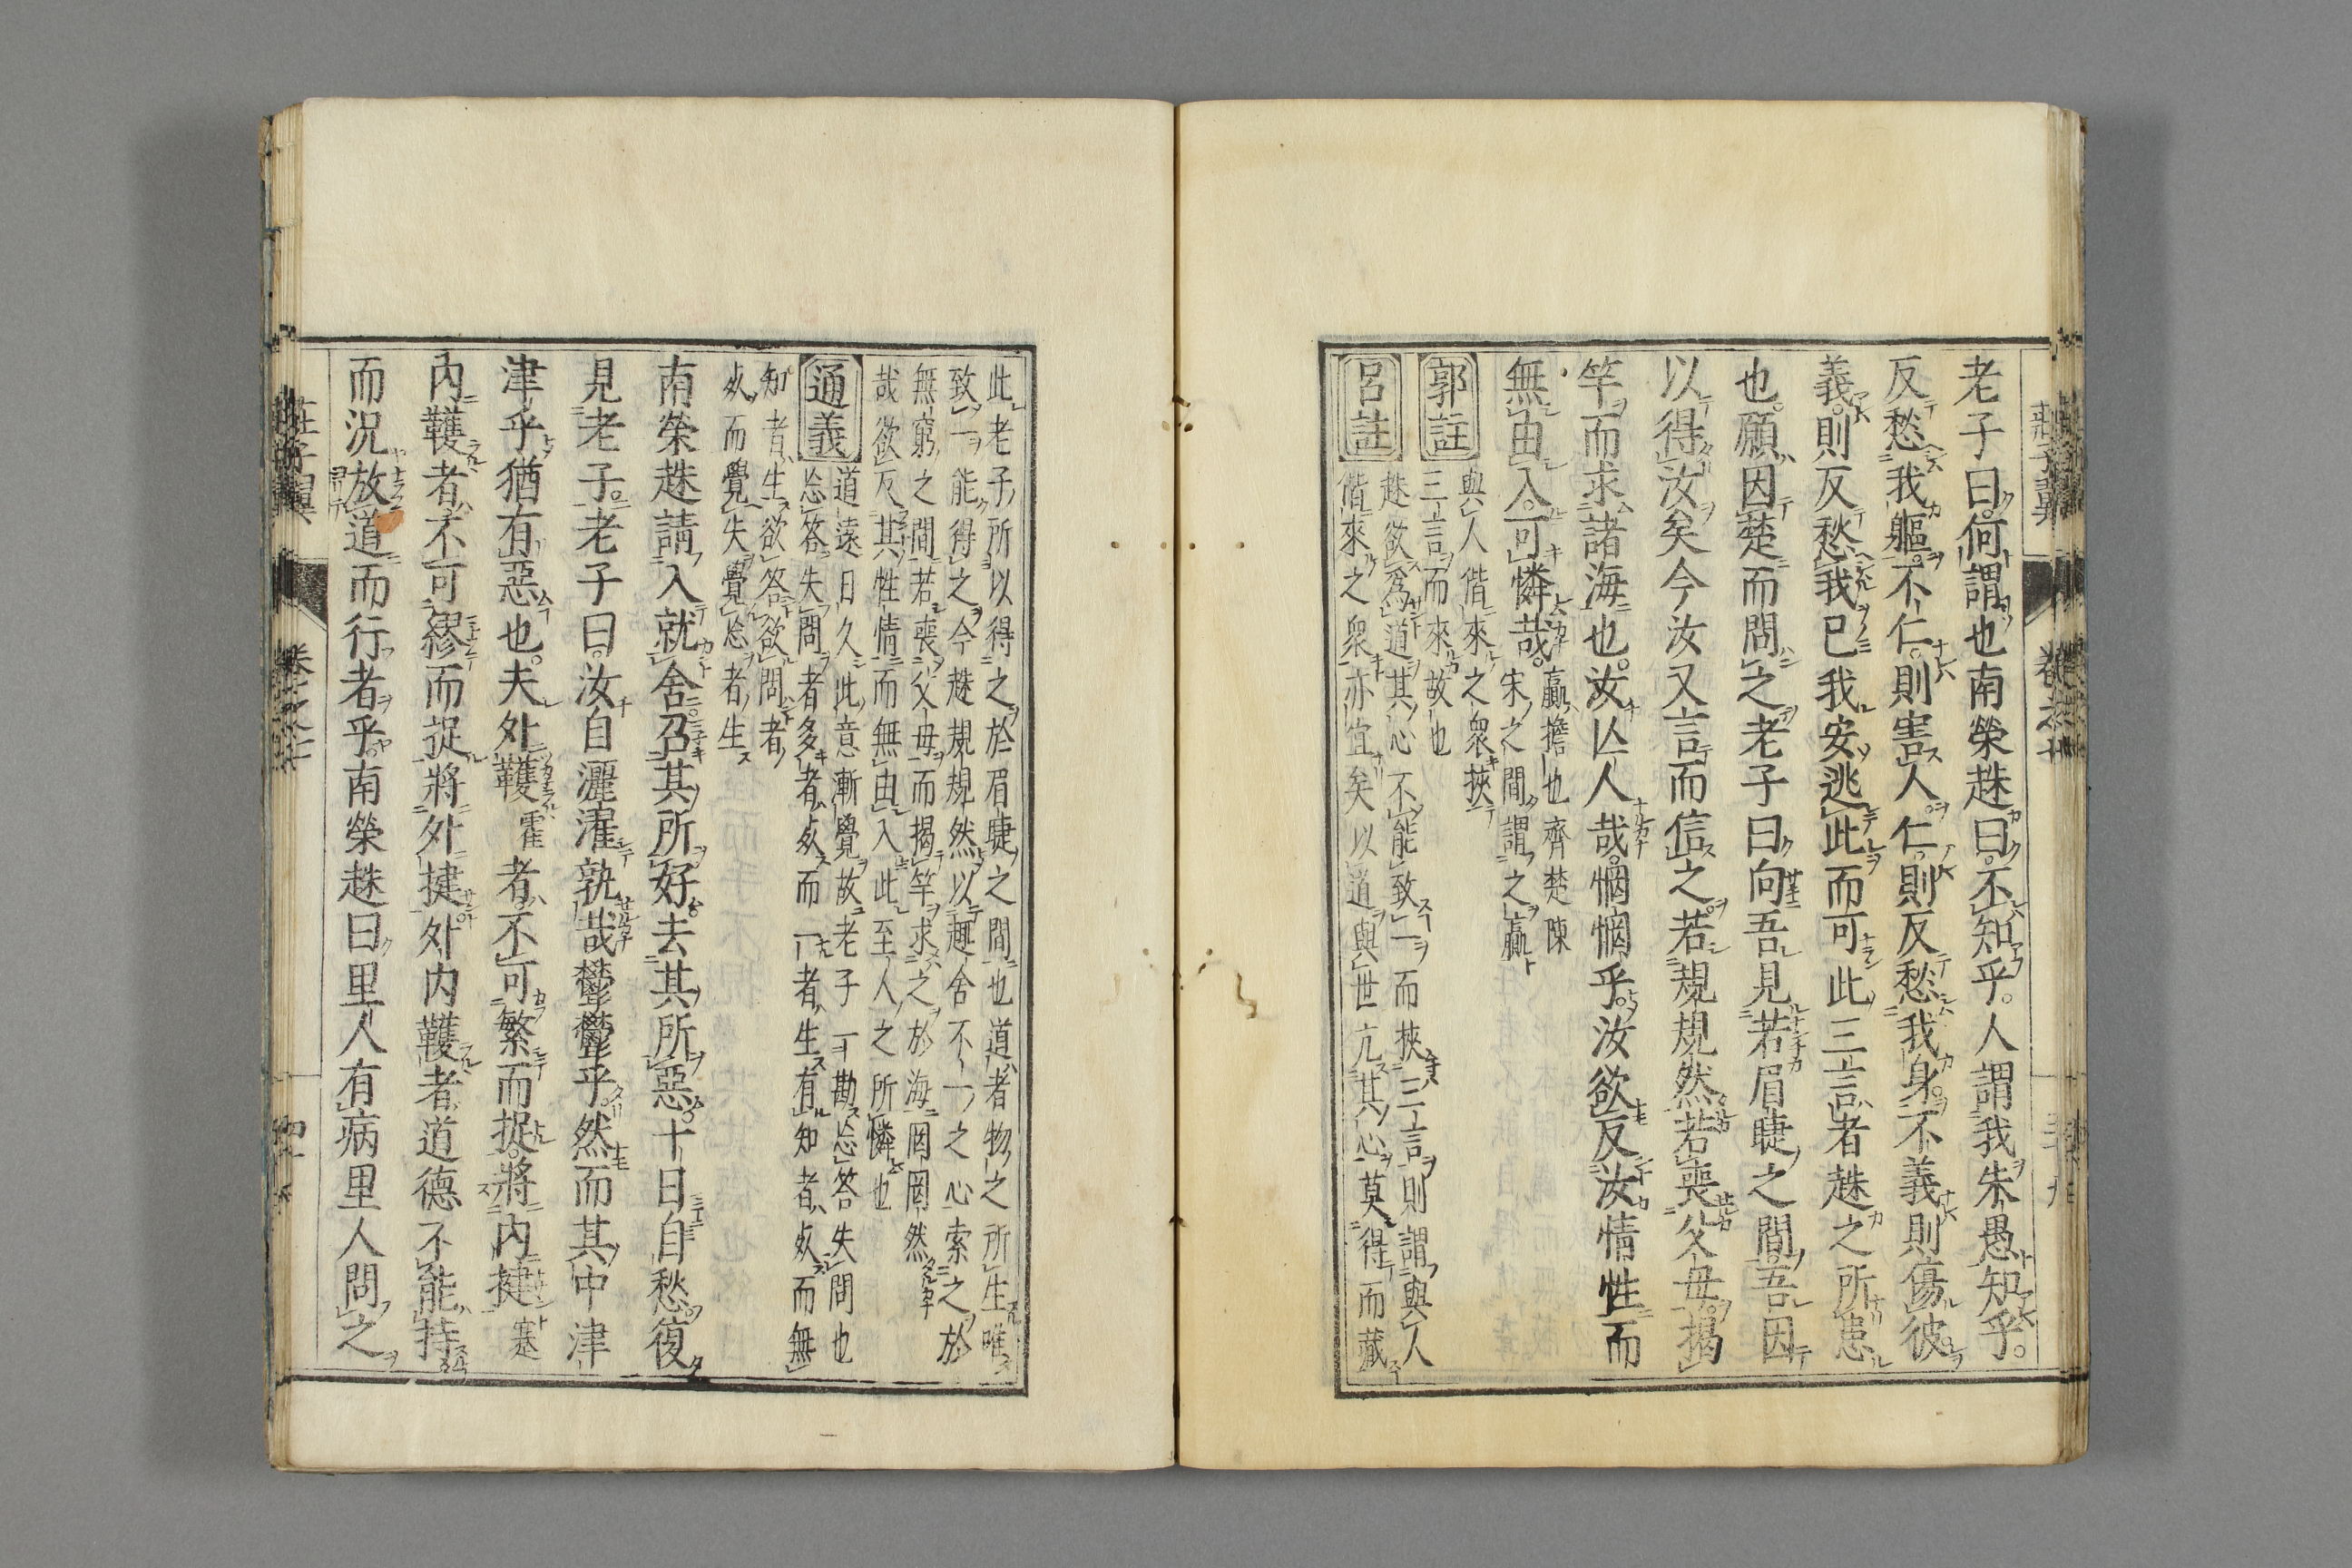 莊子翼 卷之七 三十九
老子曰。何謂也南榮趎曰。不知乎。人謂我朱愚知乎。
反愁我軀。不仁則害人。仁則反愁我身。不義則傷彼
義。則反愁我已我安逃此而可此三言者趎之所患
也。願因楚而問之老子曰向吾見若眉睫之間。吾因
以得汝矣今汝又言而信之。若規規然若喪父母。揭
竿而求諸海也。汝亾人哉。惘惘乎。汝欲反汝情性而
無由入。可憐哉。
贏擔也齊楚陳
宋之間謂之贏
郭註
與人偕來之衆挾
三言而來故也
呂註
趎欲爲道其心不能致一而挾三言則謂與人
偕來之衆亦宜矣以道與世亢其心莫得而藏
此老子所以得之於眉睫之間也道者物之所生唯
致一能得之今趎規規然以趣舍不一之心索之於
無窮之間若喪父母而揭竿求之於海罔罔然
哉欲反其性情而無由入此至人之所憐也
通義
道遠日久此意漸覺故老子一勘㤀答失問也
㤀答失問者多者死而一者生有知者死而無
知者生欲答欲問者
死而覺失覺㤀者生
南榮趎請入就舍。召其所好去其所惡。十日自愁。復
見老子。老子曰。汝自灑濯孰哉鬱鬱乎。然而其中津
津乎猶有惡也。夫外韄霍者。不可繁而捉。將內揵蹇
內韄者。不可繆而捉將外揵。外內韄者道德不能持
而況放道而行者乎。南榮趎曰里人有病里人問之
莊子翼 卷之七 四十